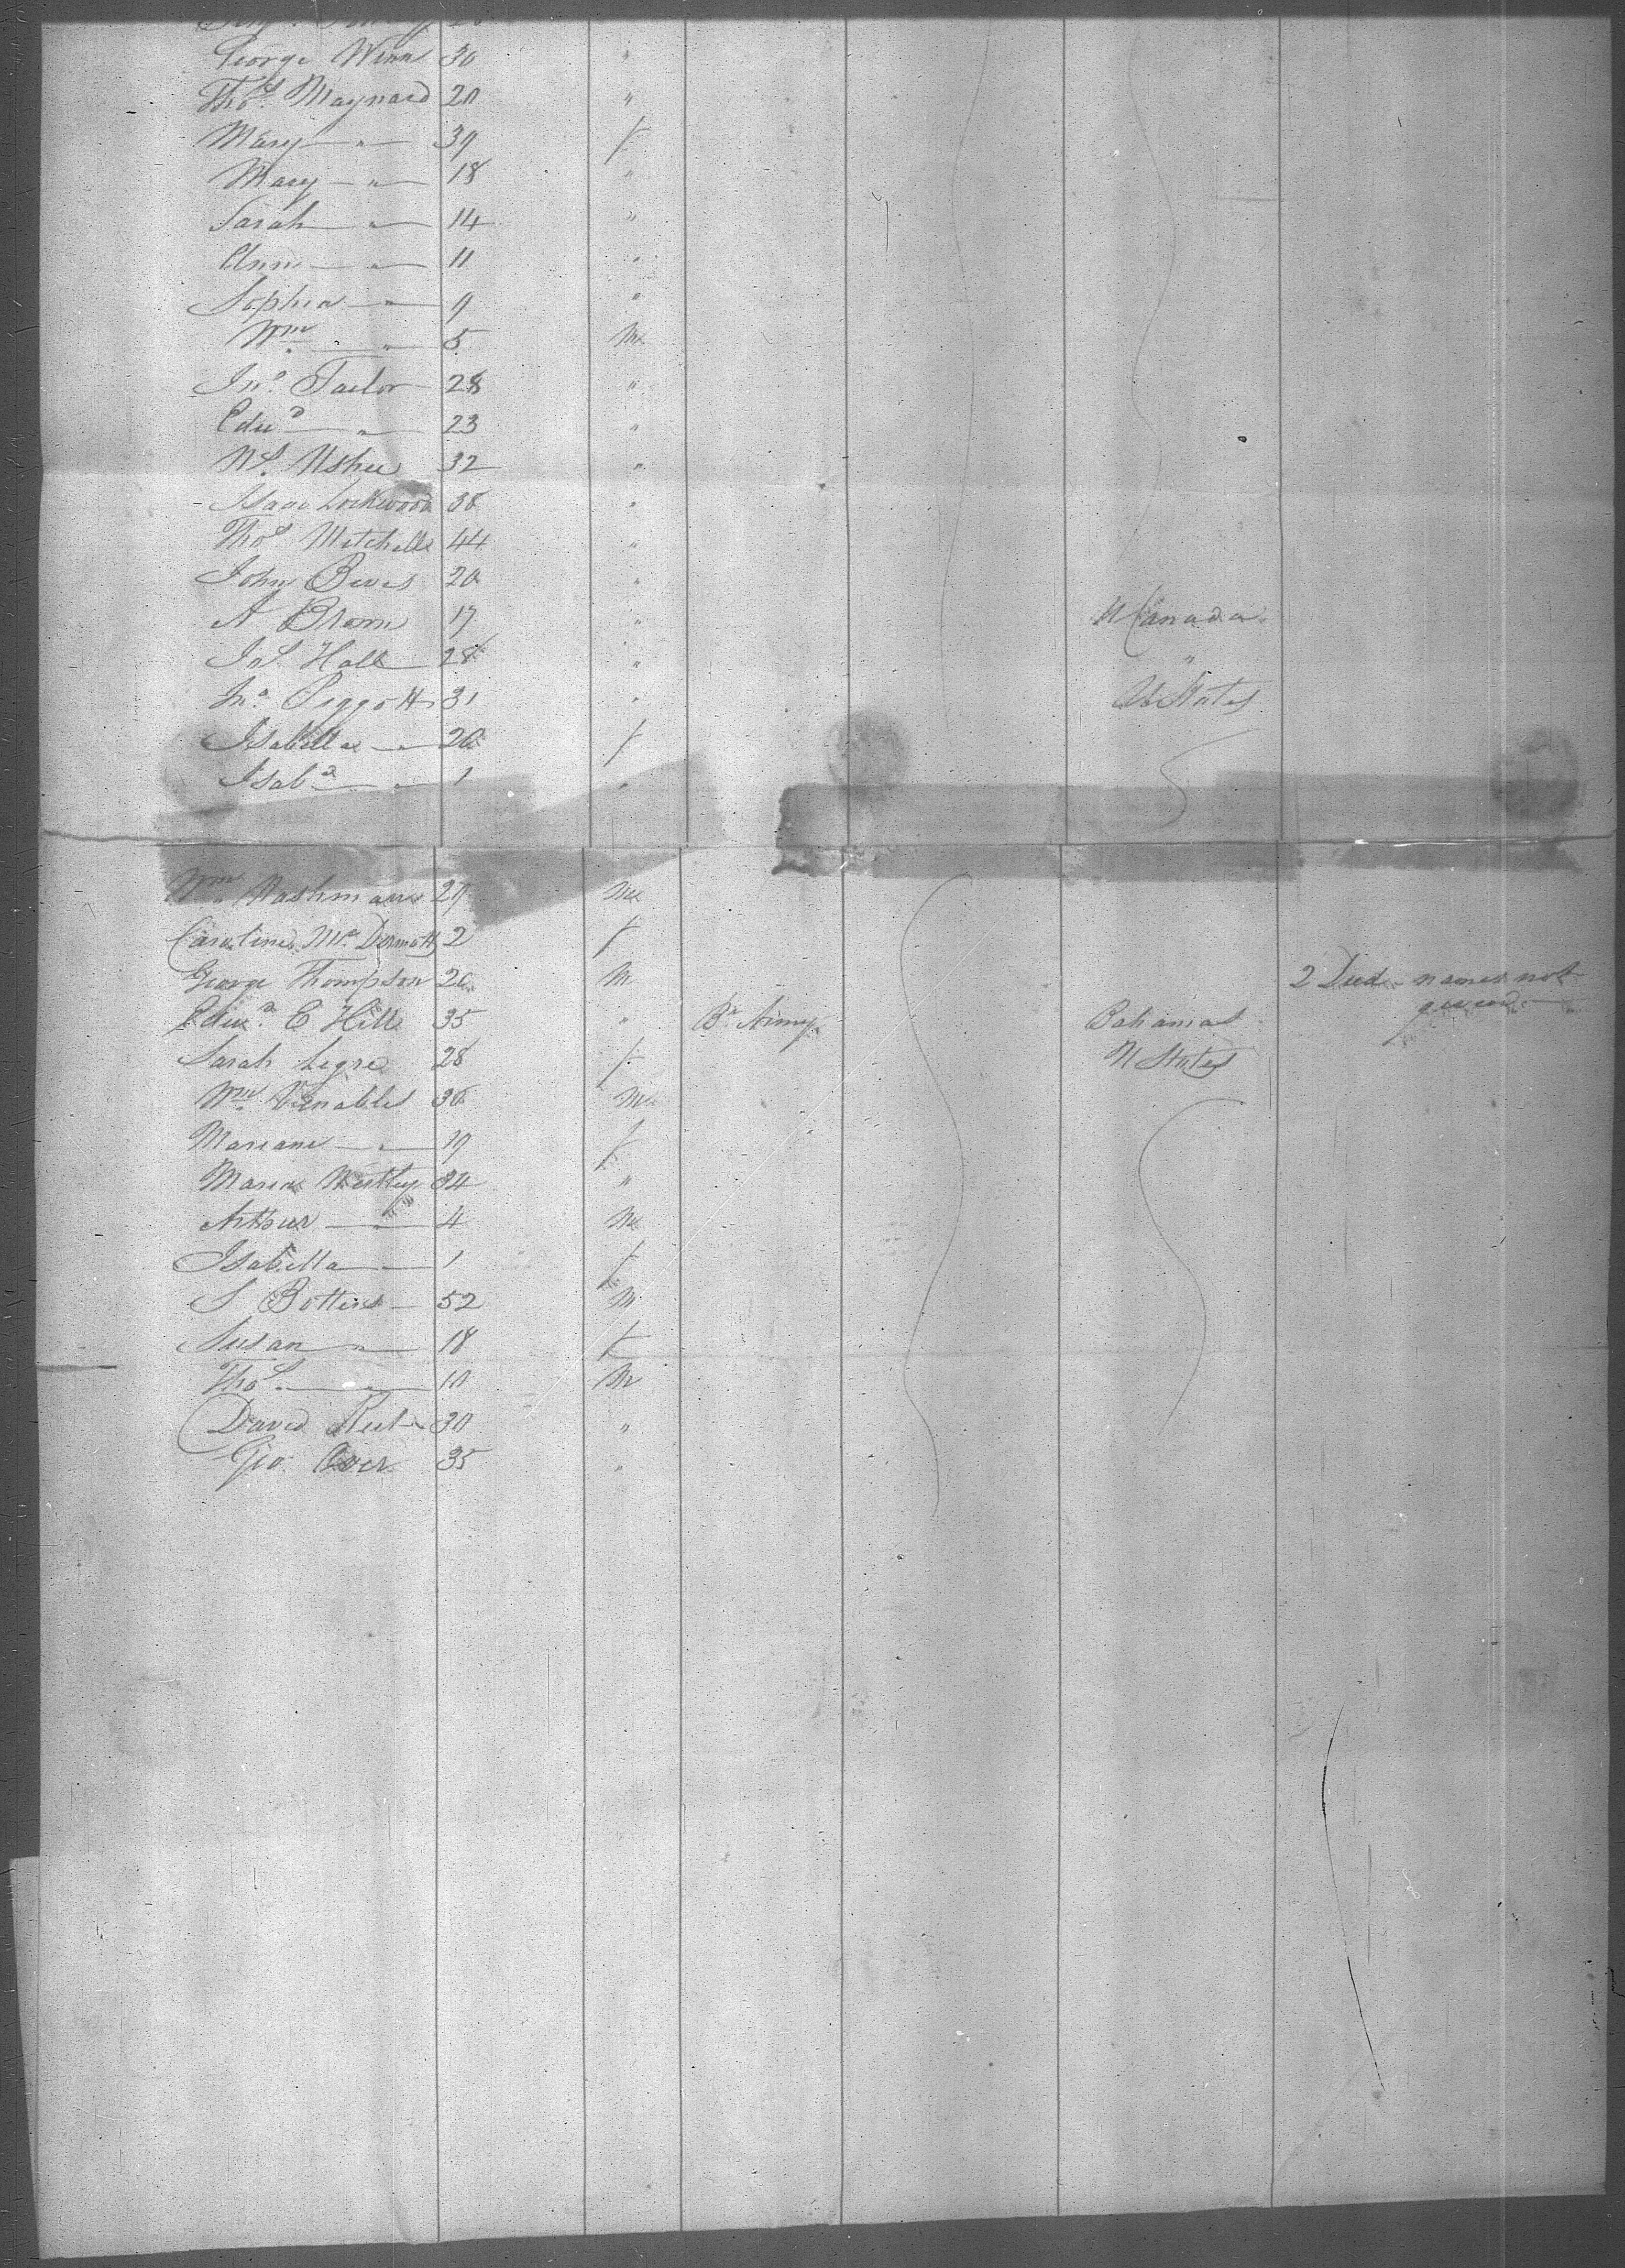 George Winn 30 "
Thos. Maynard 20 "
Mary — " — 39 f
Mary — " — 18 "
Sarah — " — 14 "
Ann — " — 11 "
Sophia — " — 9 "
Wm — " — 5 M
Jno. Tailor 28 "
Edwd — " — 23 "
Usher 32 "
Isaac Lockwood 38 "
Thos. Mitchell 44 "
John 20 "
A Brown 17 " U Canada
Jos. Hall 28 " "
Jno. Piggott 31 " U States
Isabella — " — 20 f
Isaba — " — 1 "
Wm Washman 29 M
Caroline McDermott 2 f
George Thompson 20 M 2 Died - names not
given
Edwd. C Hill 35 " Br. Army Bahamas
Sarah Legre 28 f U States
Wm. Venables 36 M
Mariane — " — 19 f
Maria 34 "
Arthur — " — 4 M
Isabella — " — 1 f
S Bottens — 52 M
Susan — " — 18 f
Thos. — " — 10 M
David 30 "
Geo. Over 35 "